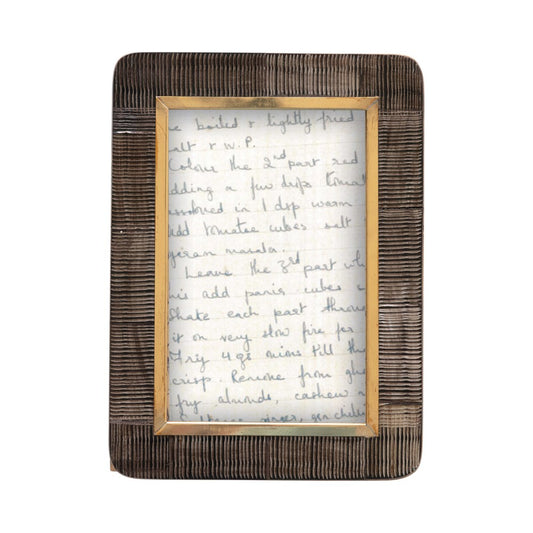 e boiled & lightly fried
alt & W.P.
Colour the 2nd part red
dding a few drops tomat
ssolved in 1 dsp warm
dd tomatoe cubes salt
garam masala.
Leave the 3rd part whi
add panir cubes
Shake each part throu
it on very slow fire for
Fry 4 gs onions till th
crisp. Remove from gh
fry almonds, cashew
ginger, grn chilie